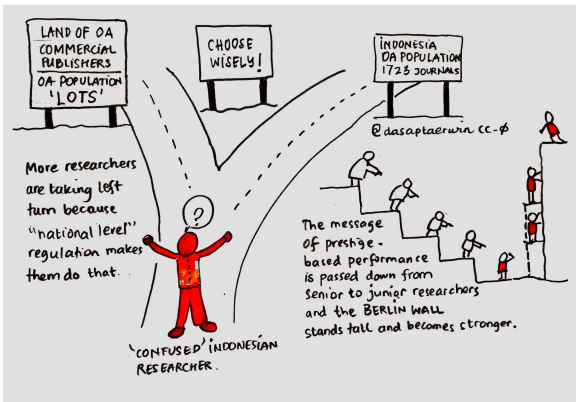 LAND OF OA
COMMERCIAL
PUBLISHERS
OA POPULATION
'LOTS'
CHOOSE
WISELY!
INDONESIA
OA POPULATION
1723 JOURNALS
@dasaptaerwin CC-Ø
More researchers
are taking left
turn because
"national level"
regulation makes
them do that..
?
The message
of prestige-
based performance
is passed down from
senior to junior researchers
and the BERLIN WALL
stands tall and becomes stronger.
'CONFUSED' INDONESIAN
RESEARCHER.